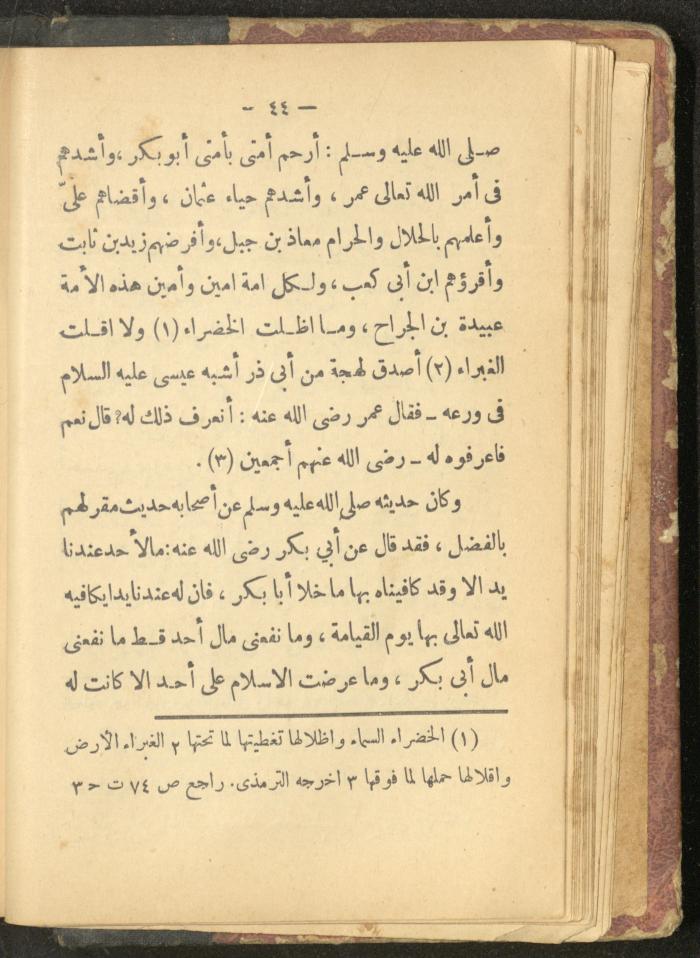 — ٤٤ -
صـلى الله عليه وسـلم : أرحم أمتى بأمتى أبو بكر ، وأشدهم
فى أمر الله تعالى عمر ، وأشدهم حياء عثمان ، وأقضاهم علىّ
وأعلمهم بالحلال والحرام معاذ بن جبل، وأفرضهم زيد بن ثابت
وأقرؤهم ابن أبى كعب ، ولـكل امة امين وأمين هذه الأمة
عبيدة بن الجراح ، ومـا اظـلت الخضراء (١) ولا اقـلت
الغبراء (٢) أصدق لهجة من أبى ذر أشبه عيسى عليه السلام
فى ورعه ـ فقال عمر رضى الله عنه : أنعرف ذلك له؟ قال نعم
فاعرفوه له ـ رضى الله عنهم أجمعين (٣) .
وكان حديثه صلى الله عليه وسلم عن أصحابه حديث مقر لهم
بالفضل ، فقد قال عن أبي بكر رضى الله عنه: مالأحد عندنا
يد الا وقد كافيناه بها ما خلا أبا بكر ، فان له عندنا يدا يكافيه
الله تعالى بها يوم القيامة ، وما نفعنى مال أحد قـط ما نفعنى
مال أبى بكر ، وما عرضت الاسلام على أحـد الا كانت له
(١) الخضراء السماء واظلالها تغطيتها لما تحتها ٢ الغبراء الأرض
واقلالها حملها لما فوقها ٣ اخرجه الترمذى. راجع ص ٧٤ ت ح ٣